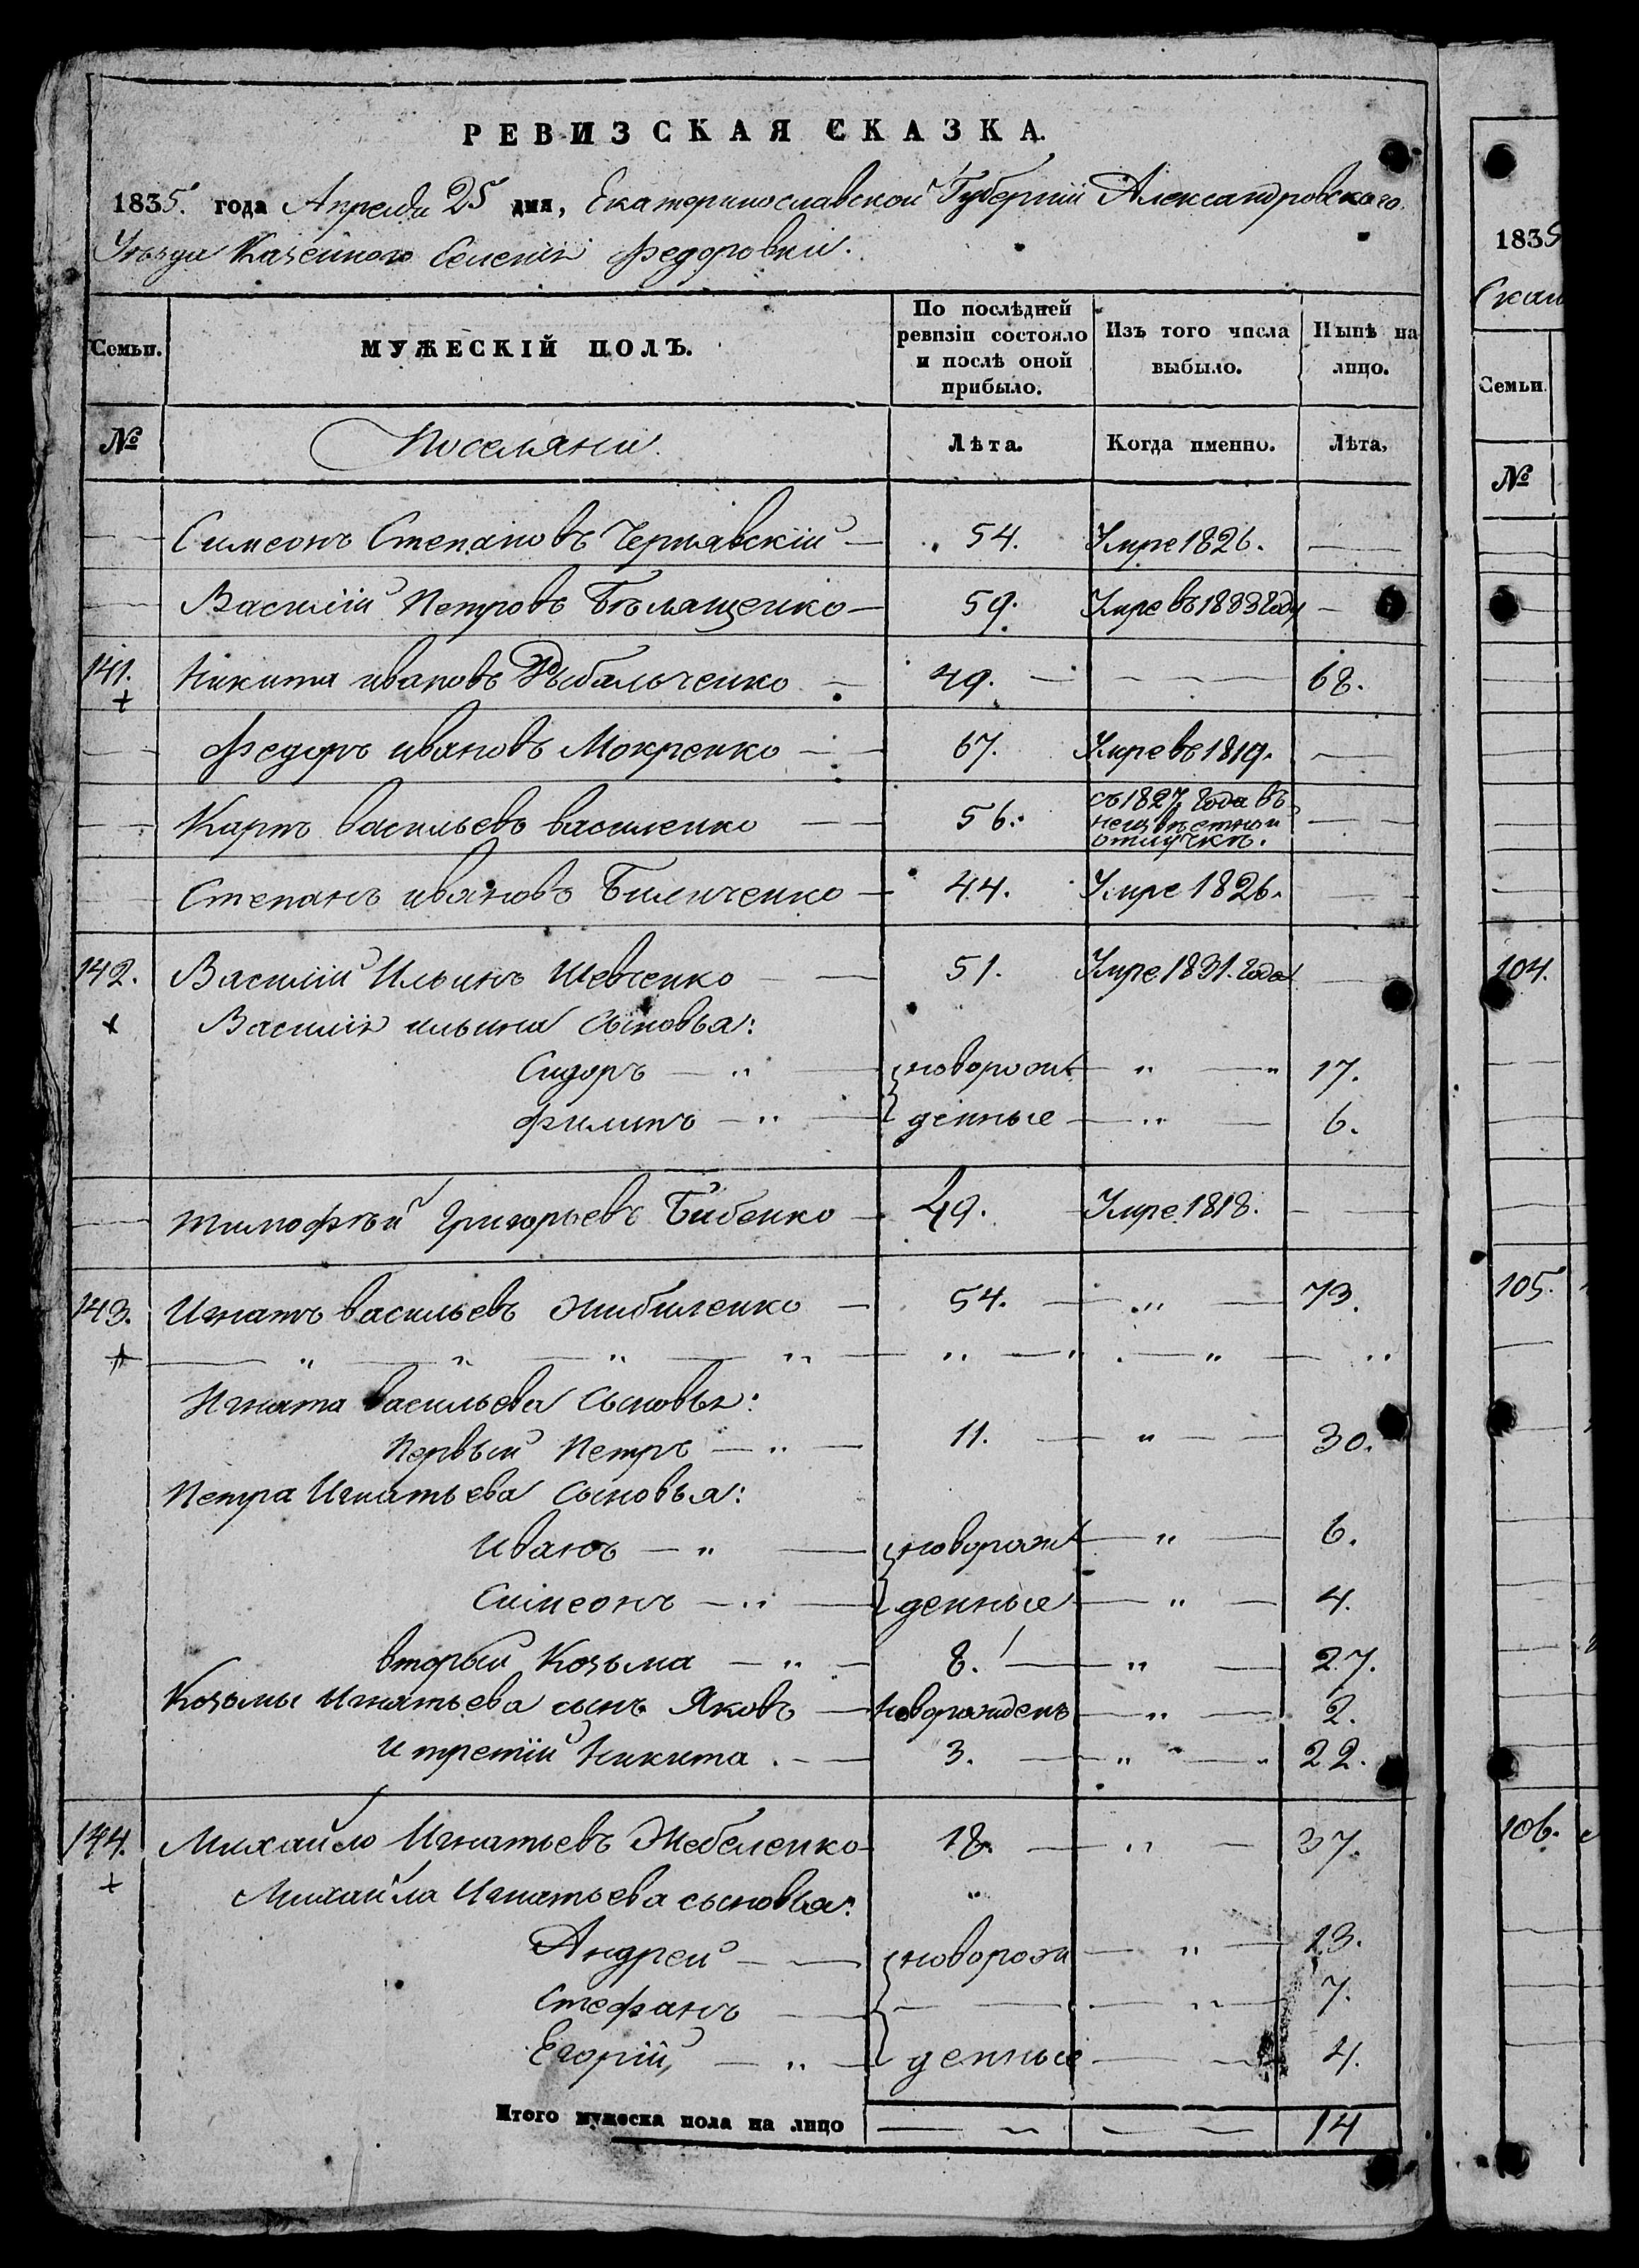 РЕВИЗСКАЯ СКАЗКА.
1835. года Апреля 25 дня, Екатеринославской Губерніи Александровского
Уезда Казенного Селенія Федоровки.
Семьи. МУЖЕСКІЙ ПОЛЪ. По послѣдней ревизіи состояло и послѣ оной прибыло. Изъ того числа выбыло. Нынѣ на лицо.
№ Поселяни. Лѣта. Когда именно. Лѣта,
Симеонъ Степановъ Чернявскій 54. Умре 1826. —
Василій Петровъ Бѣлащенко — 59. Умре въ 1833 году —
141. Никита ивановъ Рыбальченко — 49. — 68.
+
Федоръ ивановъ Мокренко — 67. Умре въ 1819. —
Карпъ васильевъ василенко — 56. съ 1827 года въ неизвѣстной отлучкѣ. —
Степанъ ивановъ Биличенко — 44. Умре 1826. —
142. Василій Ильинъ Шевченко — 51. Умре 1831. года —
+ Василія ильина сыновья:
Сидоръ — " — новорож — " — " 17.
Филипъ — " — денные — " — 6.
Тимофѣй Григорьевъ Бибенко — 49. Умре 1818. —
143. Игнатъ васильевъ Жибиленко — 54. — " — 73.
+ — " — " — " — " — " — " . — " — "
Игната васильева Сыновья:
Первый Петръ — " — 11. — " — 30.
Петра Игнатьева сыновья:
Иванъ — " — новорож — " — 6.
Симеонъ — " — денные — " — 4.
вторый Козьма — " — 8. — " — 27.
Козьмы Игнатьева сынъ Яковъ — новорожденъ — " — 2.
и третій Никита . — 3. — " — " 22.
144. Михайло Игнатьевъ Жебеленко — 18. — " — 37.
+ Михайла Игнатьева сыновья: "
Андрей — новорож — " — 13.
Стефанъ — — " — 7.
Егорій, — " — денные — 4.
Итого мужеска пола на лицо — — 14
1835
Семьи.
№
104.
105.
106.